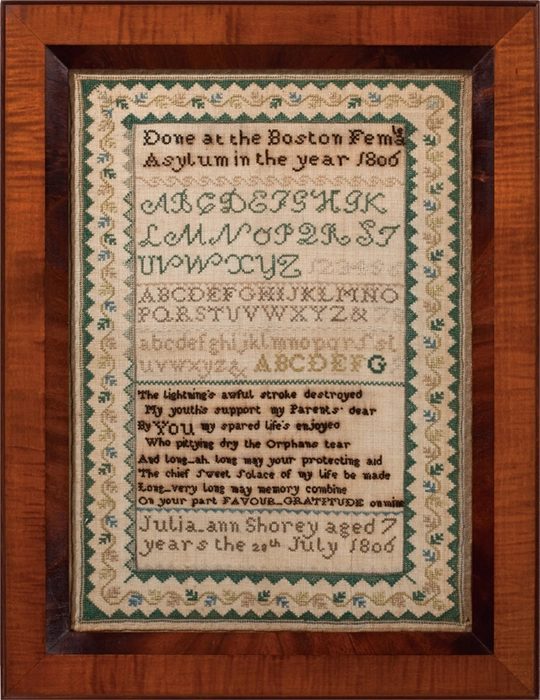 Done at the Boston Femle
Asylum in the year 1806
ABCDEFGHIK
LMNOPQRST
UVWXYZ 123456
ABCDEFGHIJKLMNO
PQRSTUVWXYZ& 78
abcdefghijklmnopqrſst
uvwxyz& ABCDEFG
The lightning's awful stroke destroyed
My youth's support my Parents' dear
By YOU my spared life's enjoyed
Who pittying dry the Orphans tear
And long_ah long may your protecting aid
The chief sweet solace of my life be made
Long_very long may memory combine
On your part FAVOUR_GRATITUDE on mine
Julia_ann Shorey aged 7
years the 28th July 1806